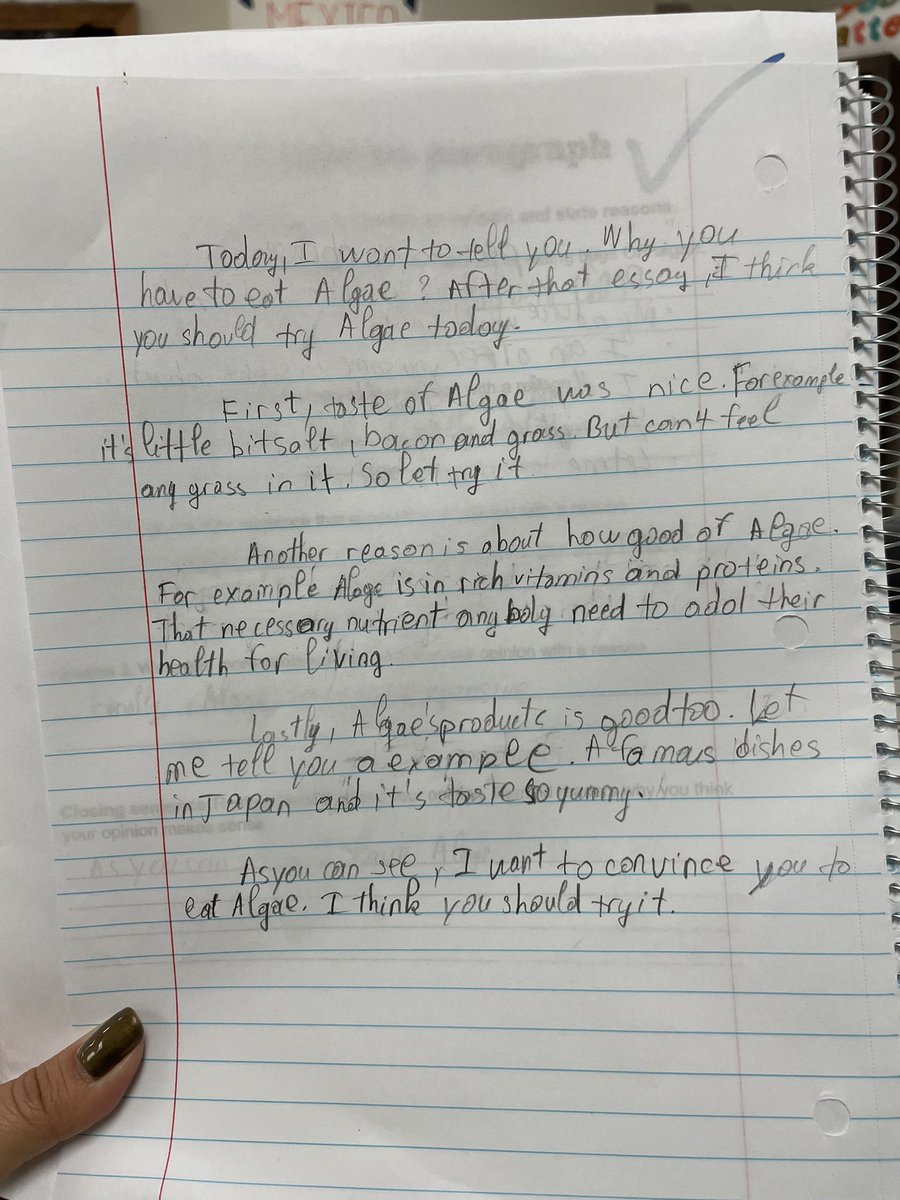 MEXICO
Today, I want to tell you. Why you
have to eat Algae ? After that essay, I think
you should try Algae today.
First, taste of Algae was nice. For example
it's little bit salt, bacon and grass. But can't feel
any grass in it. So let try it
Another reason is about how good of Algae.
For example Alage is in rich vitamins and proteins.
That necessary nutrient any boly need to adol their
health for living.
Lastly, Algae's productc is good too. Let
me tell you a example. A famous dishes
in Japan and it's taste so yummy.
As you can see, I want to convince you to
eat Algae. I think you should try it.